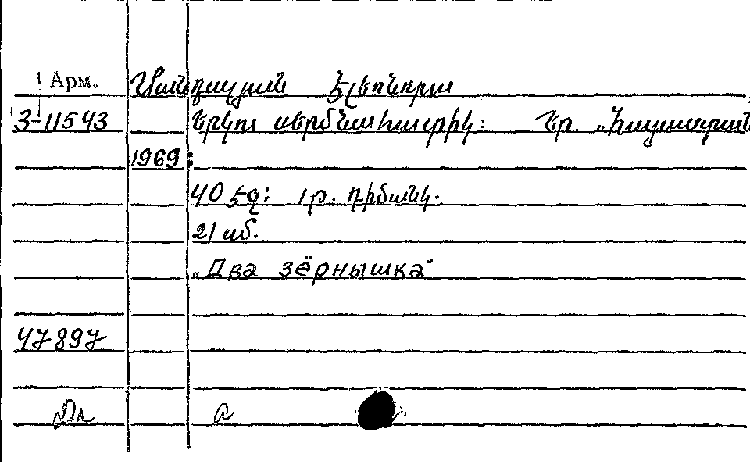 Арм.
Մանդալյան Էլեոնորա
3-11543 Երկու սերմնահատիկ: Եր. „Հայաստան
1969:
40 էջ: 1 թ. դիմանկ.
21 սմ.
„Два зёрнышка"
47897
а